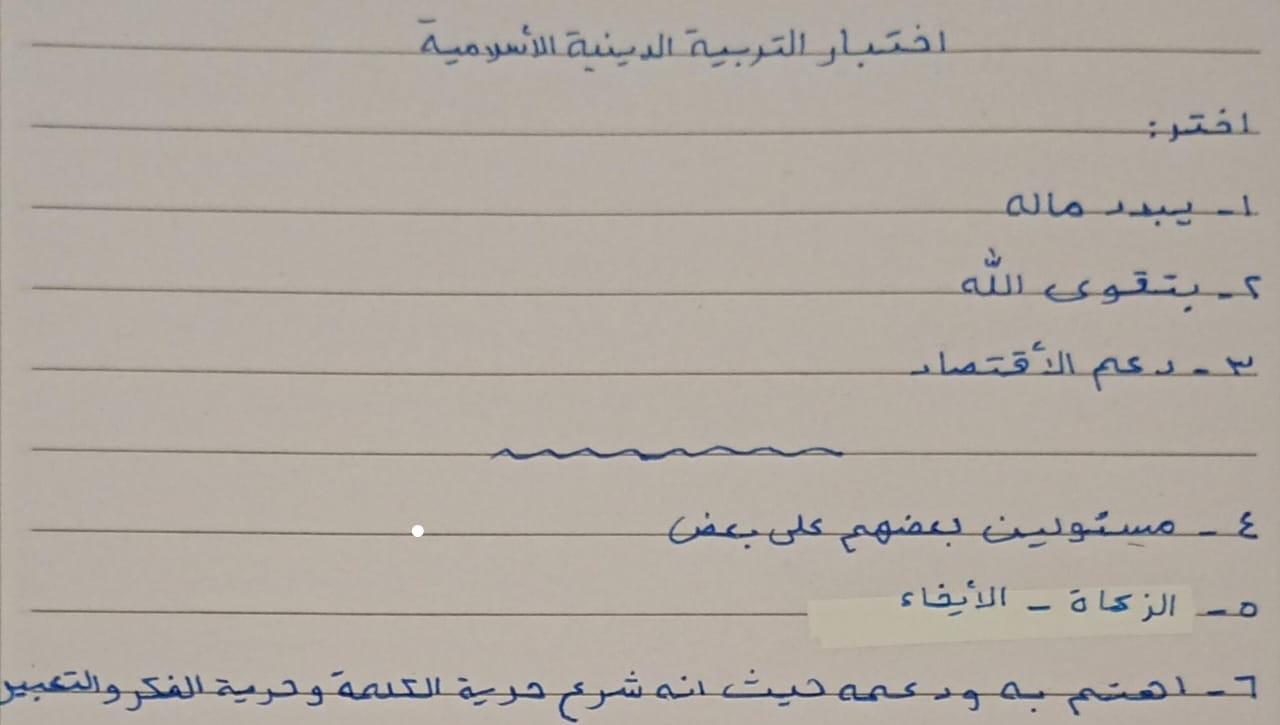 اختبار التربية الدينية الأسلامية
اختر:
١- يبدد ماله
٢- بتقوى الله
٣- دعم الأقتصاد
٤- مسئولين بعضهم على بعض
٥- الزكاة - الأيفاء
٦- اهتم به ودعمه حيث انه شرع حرية الكلمة وحرية الفكر والتعبير